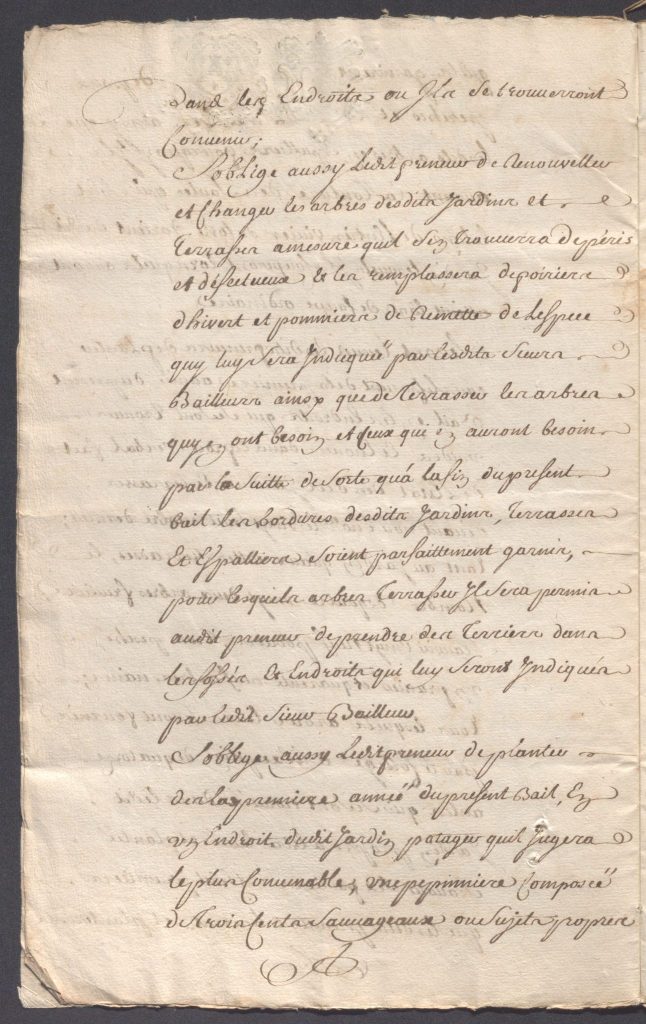 dans les Endroits ou Ils se trouverront
Convenir;
S'oblige aussy Ledit preneur de Renouveller
et Changer les arbres desdits Jardins et
Terrasses amesure quil s'en trouverra de peris
et défectueux & les remplassera de poiriers
d'hivert et pommiers de Reinette de Lespece
quy luy sera Indicqué par lesdits Sieurs
Bailleurs ainsy que de Terrasser les arbres
quy en ont besoin et Ceux qui en auront besoin
par la Suitte de Sorte quá la fin du present
bail les bordures desdits Jardins, Terrasses
Et Espalliers soient parfaittement garnis,
pour lesquels arbres Terrasser Il sera permis
audit preneur de prendre des Terriers dans
les fossés & Endroits qui luy seront Indiqués
par ledit Sieur Bailleur
S'oblige aussy Ledit preneur de planter
des la premiere année du present Bail, En
un Endroit dudit Jardin potager quil Jugera
le plus Convenable, une pepinniere Composée
de Trois Cents Sauvageaux ou Sujets propres